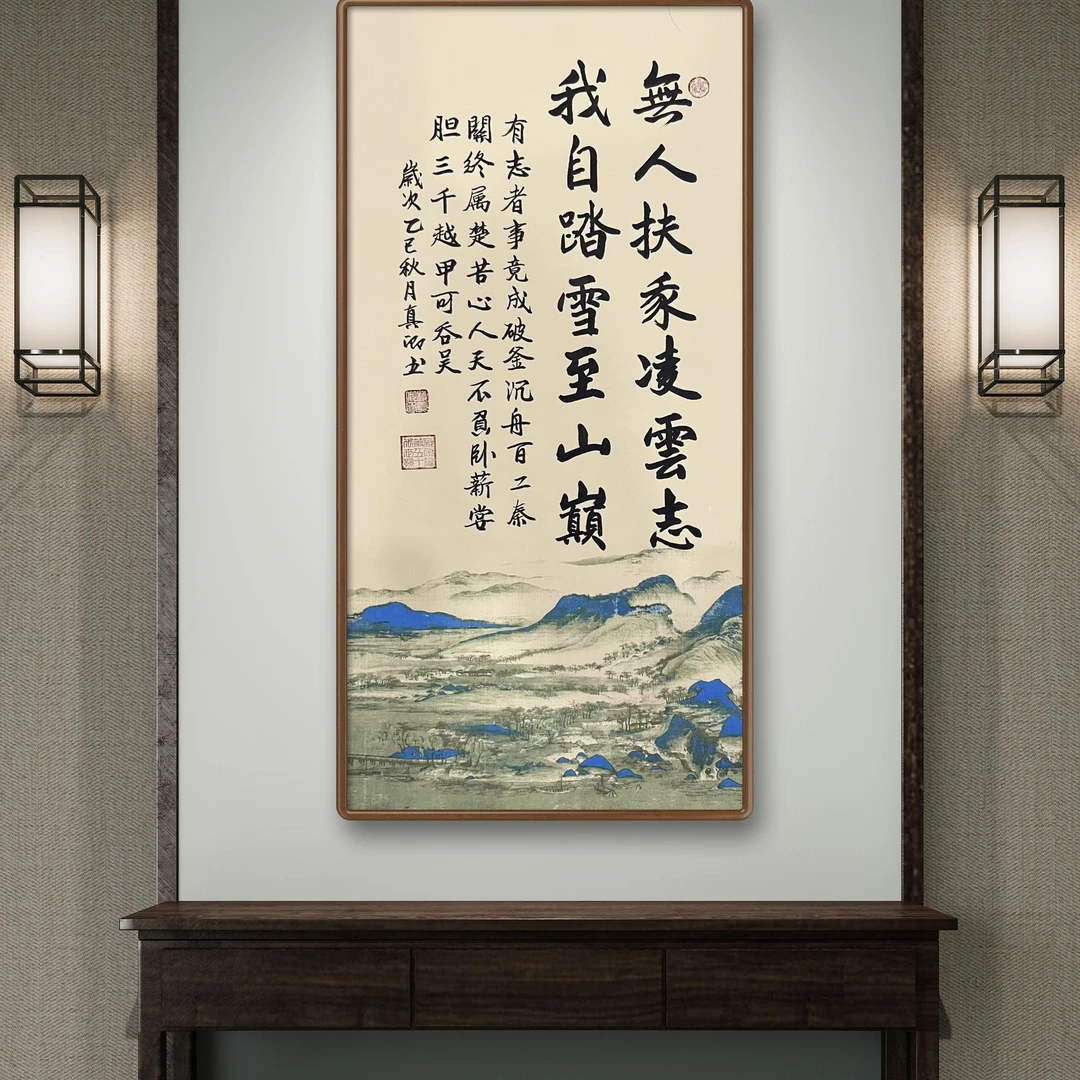 無人扶我凌雲志
我自踏雪至山巔
有志者事竟成破釜沉舟百二秦
關終属楚苦心人天不負卧薪嘗
胆三千越甲可吞吴
歲次乙巳秋月真书